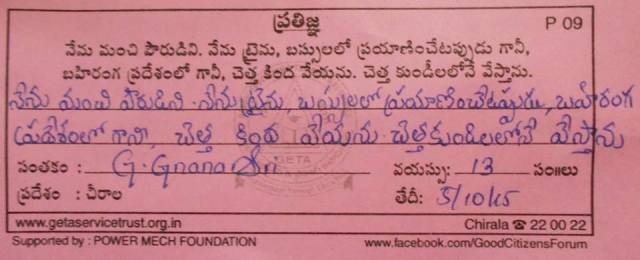 ప్రతిజ్ఞ
P 09
నేను మంచి పౌరుడిని. నేను ట్రైను, బస్సులలో ప్రయాణించేటప్పుడు గానీ,
బహిరంగ ప్రదేశంలో గానీ, చెత్త కింద వేయను. చెత్త కుండీలలోనే వేస్తాను.
నేను మంచి పౌరుడిని. నేను ట్రైను, బస్సులలో ప్రయాణించేటప్పుడు, బహిరంగ
ప్రదేశంలో గానీ, చెత్త కింద వేయను. చెత్తకుండీలలోనే వేస్తాను
సంతకం : G. Gnana Sri వయస్సు: 13 సం॥లు
ప్రదేశం : చీరాల తేదీ: 5/10/15
GETA
www.getaservicetrust.org.in Chirala ☎ 22 00 22
Supported by : POWER MECH FOUNDATION www.facebook.com/GoodCitizensForum